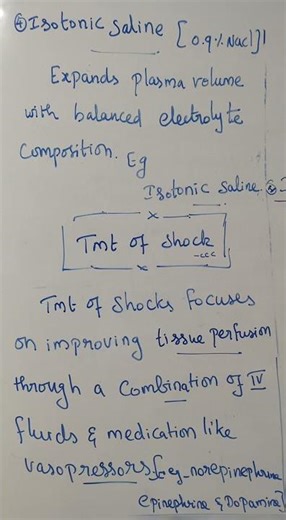 ④ Isotonic Saline [0.9% Nacl]
Expands plasma volume
with balanced electrolyte
Composition. Eg
Isotonic Saline
Tmt of Shock
Tmt of Shocks Focuses
on improving tissue perfusion
through a Combination of IV
fluids & medication like
vasopressors [eg norepinephrine
epinephrine & Dopamine]